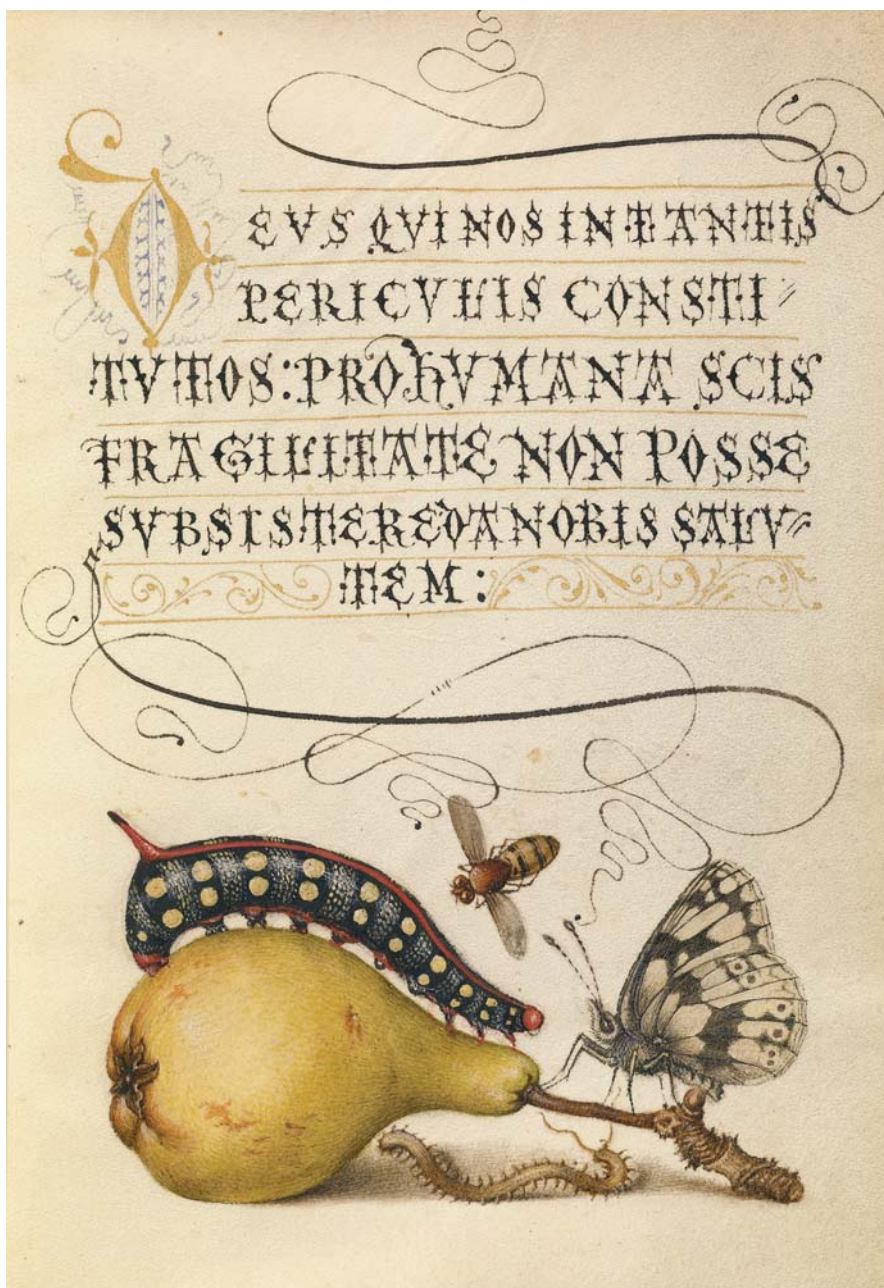 DEVS QVI NOS IN TANTIS
PERICVLIS CONSTI=
TVTOS: PRO hVMANA SCIS
FRAGILITATE NON POSSE
SVBSISTERE DA NOBIS SALV=
TEM: